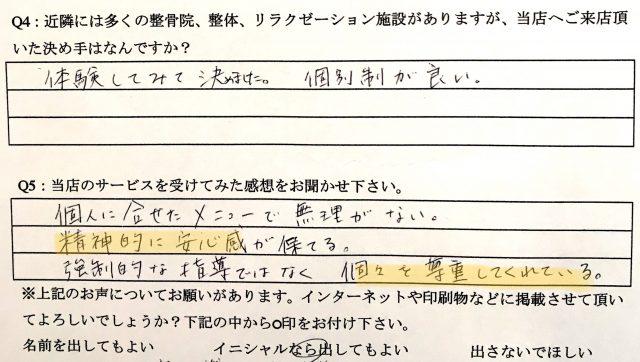 Q4：近隣には多くの整骨院、整体、リラクゼーション施設がありますが、当店へご来店頂
いた決め手はなんですか？
体験してみて決めました。 個別制が良い。
Q5：当店のサービスを受けてみた感想をお聞かせ下さい。
個人に合せたメニューで無理がない。
精神的に安心感が保てる。
強制的な指導ではなく 個々を尊重してくれている。
※上記のお声についてお願いがあります。インターネットや印刷物などに掲載させて頂い
てよろしいでしょうか？下記の中から○印をお付け下さい。
名前を出してもよい イニシャルなら出してもよい 出さないでほしい